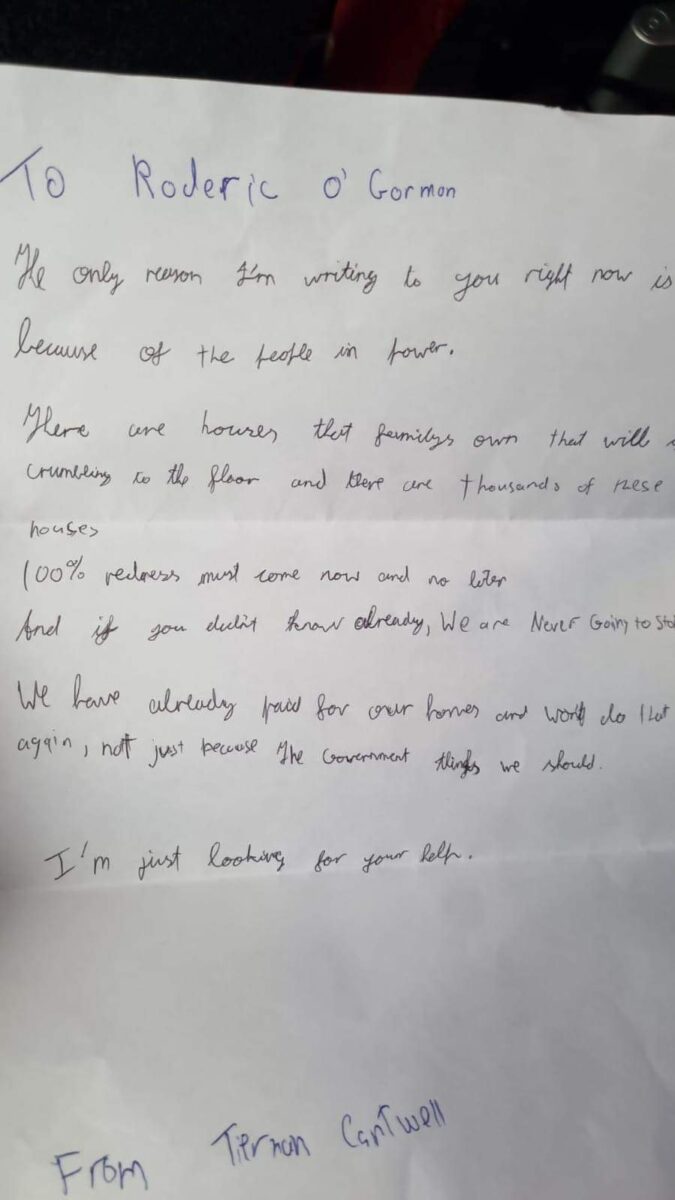 To Roderic O' Gorman
The only reason I'm writing to you right now is
because of the people in power.
There are houses that familys own that will
crumbling to the floor and there are thousands of these
houses
100% redress must come now and no later
And if you didn't know already, We are Never Going to sto
We have already paid for our homes and won't do that
again, not just because the Government things we should.
I'm just looking for your help.
From Tiernan Cantwell